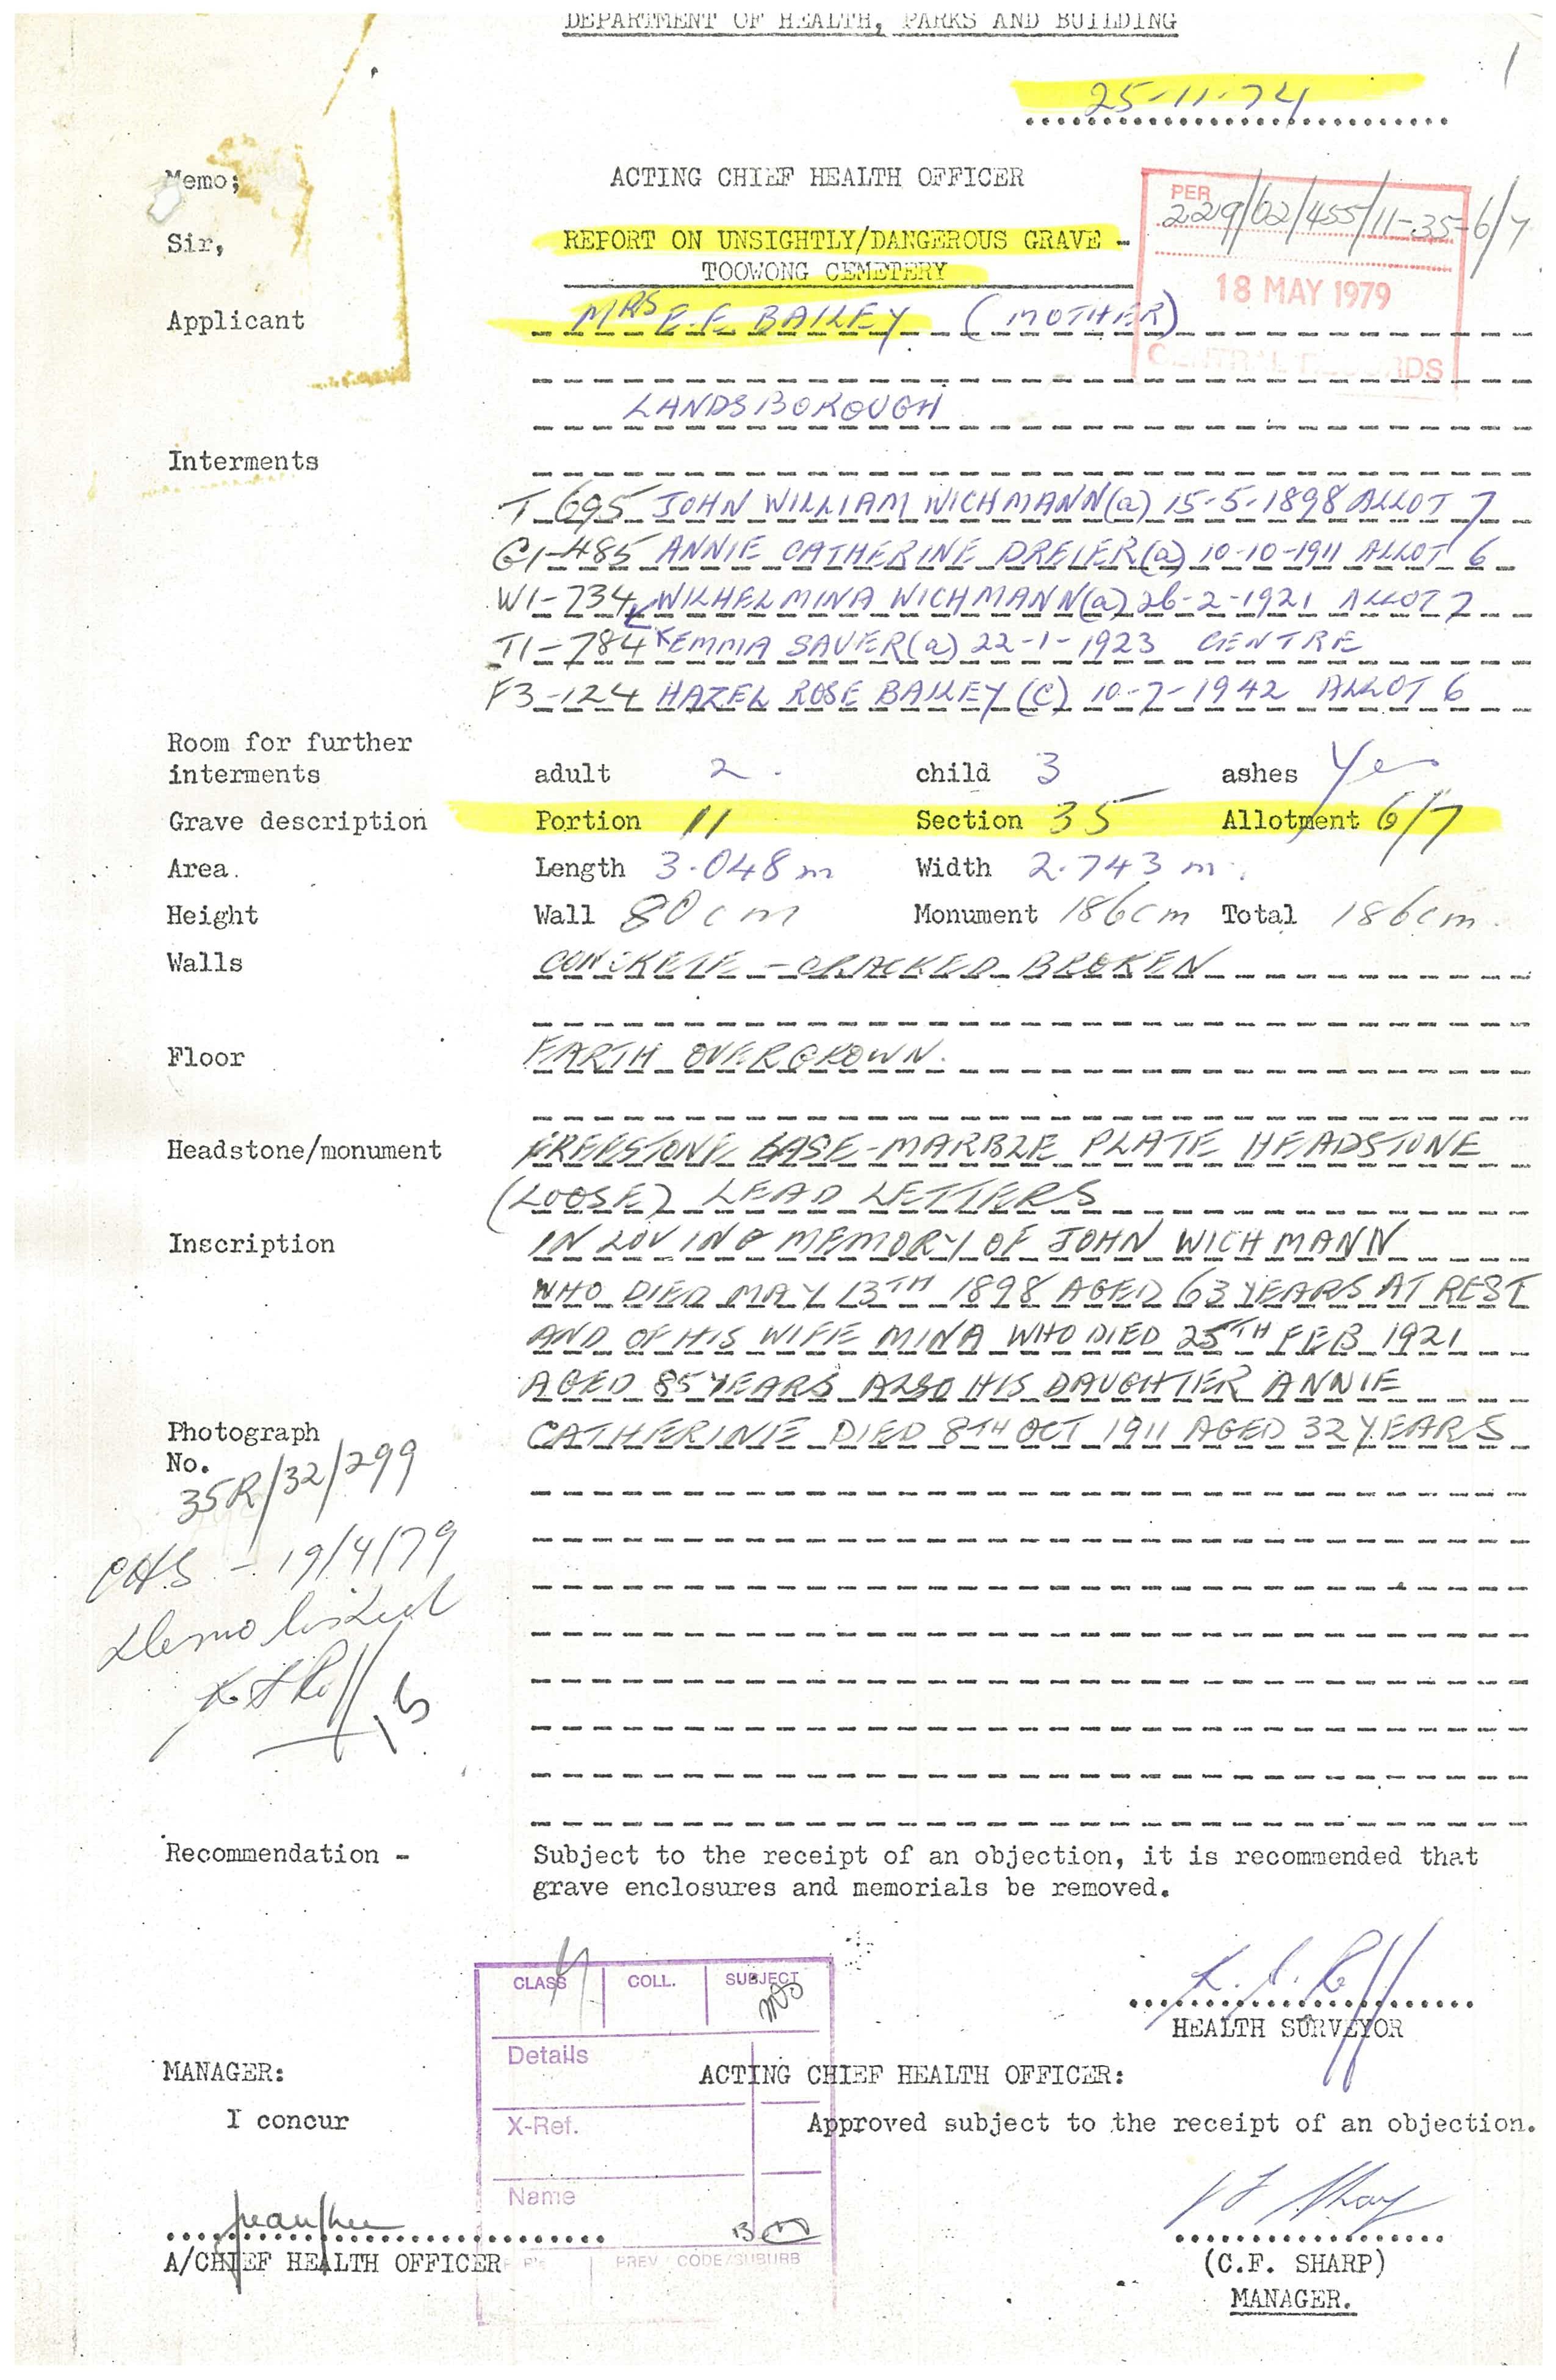 DEPARTMENT OF HEALTH, PARKS AND BUILDING
1
25-11-74
Memo; ACTING CHIEF HEALTH OFFICER
PER
229/02/455/11-35-6/7
Sir, REPORT ON UNSIGHTLY/DANGEROUS GRAVE -
TOOWONG CEMETERY
18 MAY 1979
Applicant MRS E.E. BAILEY (MOTHER)
CENTRAL RECORDS
LANDSBOROUGH
Interments
T 695 JOHN WILLIAM WICHMANN (a) 15-5-1898 ALLOT 7
G1-485 ANNIE CATHERINE DREIER (a) 10-10-1911 ALLOT 6
W1-734 WILHELMINA WICHMANN (a) 26-2-1921 ALLOT 7
T1-784 EMMA SAVER (a) 22-1-1923 CENTRE
F3-124 HAZEL ROSE BAILEY (C) 10-7-1942 ALLOT 6
Room for further
interments adult 2. child 3 ashes Yes
Grave description Portion 11 Section 35 Allotment 6/7
Area. Length 3.048m Width 2.743 m.
Height Wall 80cm Monument 186cm Total 186cm.
Walls CONCRETE - CRACKED BROKEN
Floor EARTH OVERGROWN.
Headstone/monument FREESTONE BASE-MARBLE PLATE HEADSTONE
(LOOSE) LEAD LETTERS
Inscription IN LOVING MEMORY OF JOHN WICHMANN
WHO DIED MAY 13TH 1898 AGED 63 YEARS AT REST
AND OF HIS WIFE MINA WHO DIED 25TH FEB 1921
AGED 85 YEARS ALSO HIS DAUGHTER ANNIE
Photograph CATHERINE DIED 8TH OCT 1911 AGED 32 YEARS
No.
35R/32/299
- 19/4/79
Demolished
Recommendation - Subject to the receipt of an objection, it is recommended that
grave enclosures and memorials be removed.
CLASS COLL. SUBJECT
HEALTH SURVEYOR
Details
MANAGER: ACTING CHIEF HEALTH OFFICER:
I concur X-Ref. Approved subject to the receipt of an objection.
Name
A/CHIEF HEALTH OFFICER PREV CODE/SUBURB (C.F. SHARP)
MANAGER.